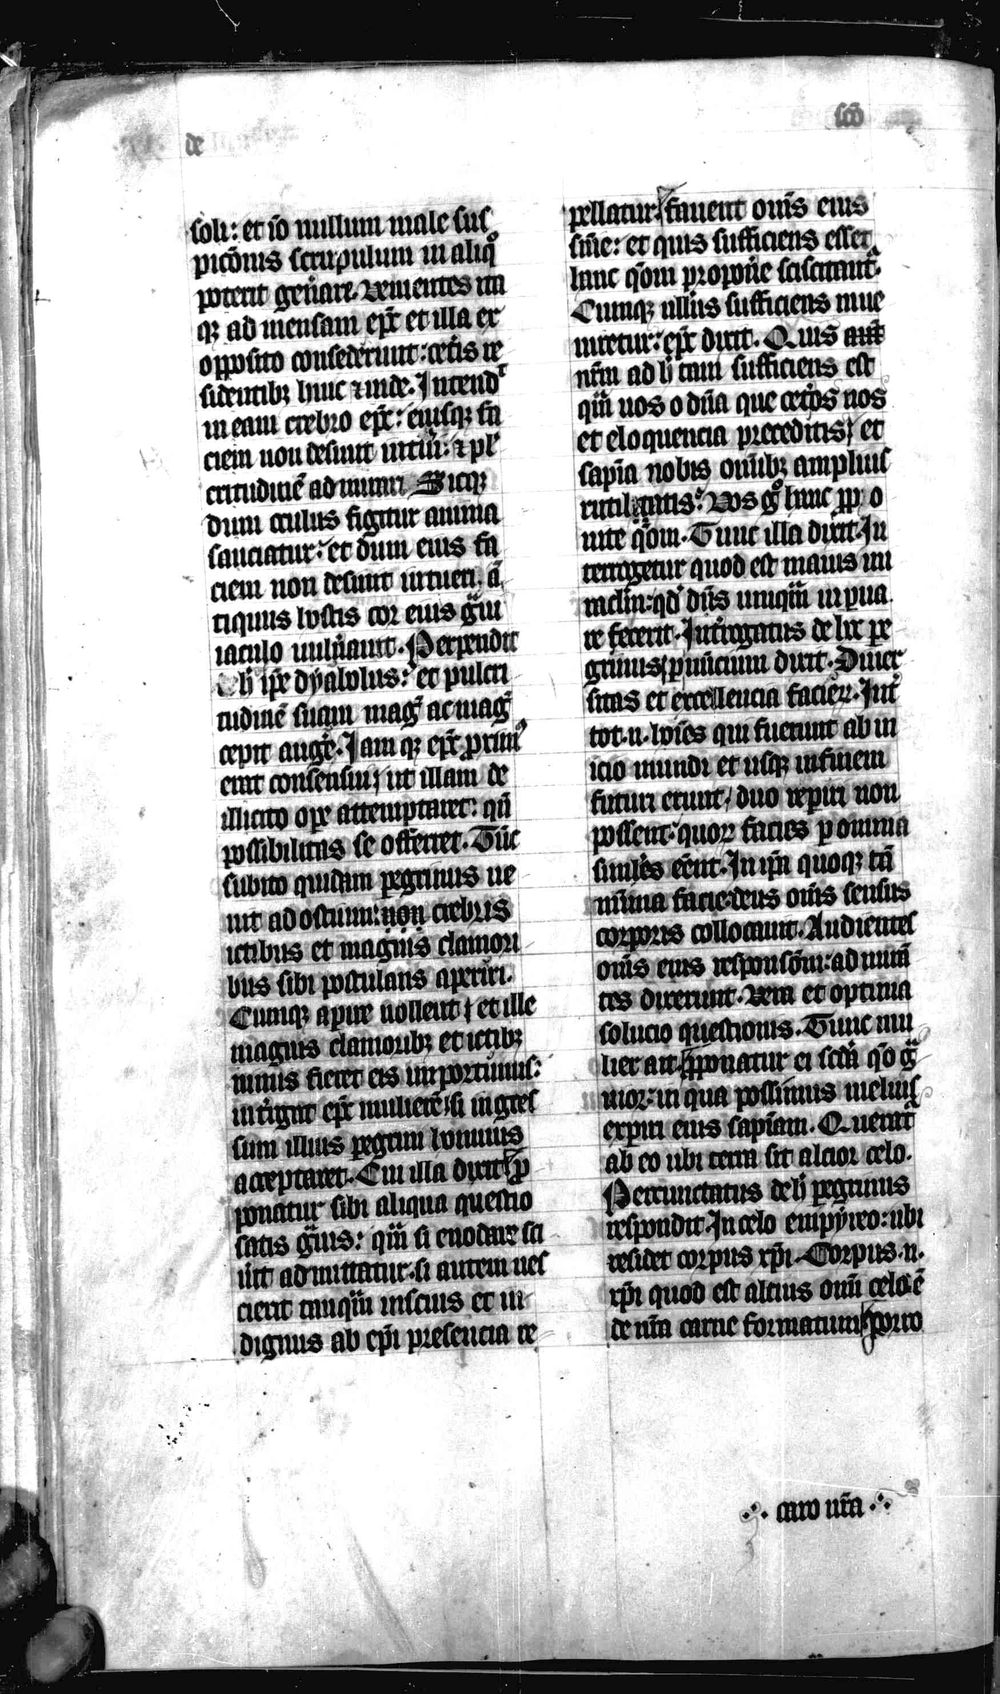 de
scō
soli: et iō nullum male sus
picōnis scrupulum in aliqͦ
poterit gen̄are. Venientes ita
qꝫ ad mensam ep̄c et illa ex
opposito consederunt: cet̄is re
sidentibꝫ hinc ⁊ inde. Intend͛
in eam crebro ep̄c: eiusqꝫ fa
ciem non desinit intūi: ⁊ pul
critudinē admirari Sicqꝫ
dum oculus figitur anima
sauciatur: et dum eius fa
ciem non desinit intueri, ā
tiquus hostis cor eius g̈ui
iaculo uuln̄auit. Perpendit
h̄ ip̄e dyabolus: et pulcri
tudinē suam mag̉ ac mag̉
cepit auḡe. Iam qꝫ ep̄c prim͛
erat consensui ut illam de
illicito oꝑe attemptaret: qn̄
possibilitas se offerret. Tūc
subito quidam ꝑegrinus ue
nit ad ostium: non crebris
ictibus et magnis clamori
bus sibi postulans aperiri.
Cumqꝫ aꝑire nollent et ille
magnis clamoribꝫ et ictibꝫ
nimis fieret eis importunus:
int̄rogat ep̄c mulierē si ingres
sum illius ꝑegrini hominis
acceptaret. Cui illa dixit ꝓ
ponatur sibi aliqua questio
satis g̈uis: qm̄ si enodare sci
uīt admittatur. si autem nes
cierit tanqm̄ inscius et in
dignus ab ep̄i presencia re
pellatur fauent om̄s eius
snīe: et quis sufficiens esset
hanc qōm proponēe sciscitant͛.
Cumqꝫ nullus sufficiens inue
niretur: ep̄c dixit. Quis aut
nrm̄ ad h̄ tam sufficiens est
qm̄ uos o dn̄a que cet̄os nos
et eloquencia preceditis et
sapīa nobis om̄ibꝫ amplius
rutilatis: Vos gͦ hinc ꝓpo
nite qōm. Tunc illa dixit. In
terrogetur quod est maius mi
raclm̄: qd̄ dn̄s unqm̄ in ꝑua
re fecerit. Int̄rogatus de hoc ꝑe
grinus ꝑ nūcium dixit. Diuer
sitas et excellencia facieꝝ. Int̄
tot .n. hoīes qui fuerunt ab in
icio mundi et usqꝫ in finem
futuri erunt duo reperiri non
possent: quoꝝ facies ꝑ omnia
similes eēnt. In ip̄a quoqꝫ tā
minima facie: deus om̄s sensus
corporis collocauit. Audientes
om̄s eius responsōm: admirā
tes dixerunt. Vera et optima
solucio questionis. Tunc mu
lier ait ꝓponatur ei scd̄a qō g̈
uior: in qua possimus melius
experiri eius sapīam. Querat͛
ab eo ubi terra sit alcior celo.
Percunctatus de h̄ ꝑegrinus
respondit. In celo empyreo: ubi
residet corpus xp̄i. Corpus .n.
xp̄i quod est altius omī celo: ē
de nr̄a carne formatum porro
caro nr̄a